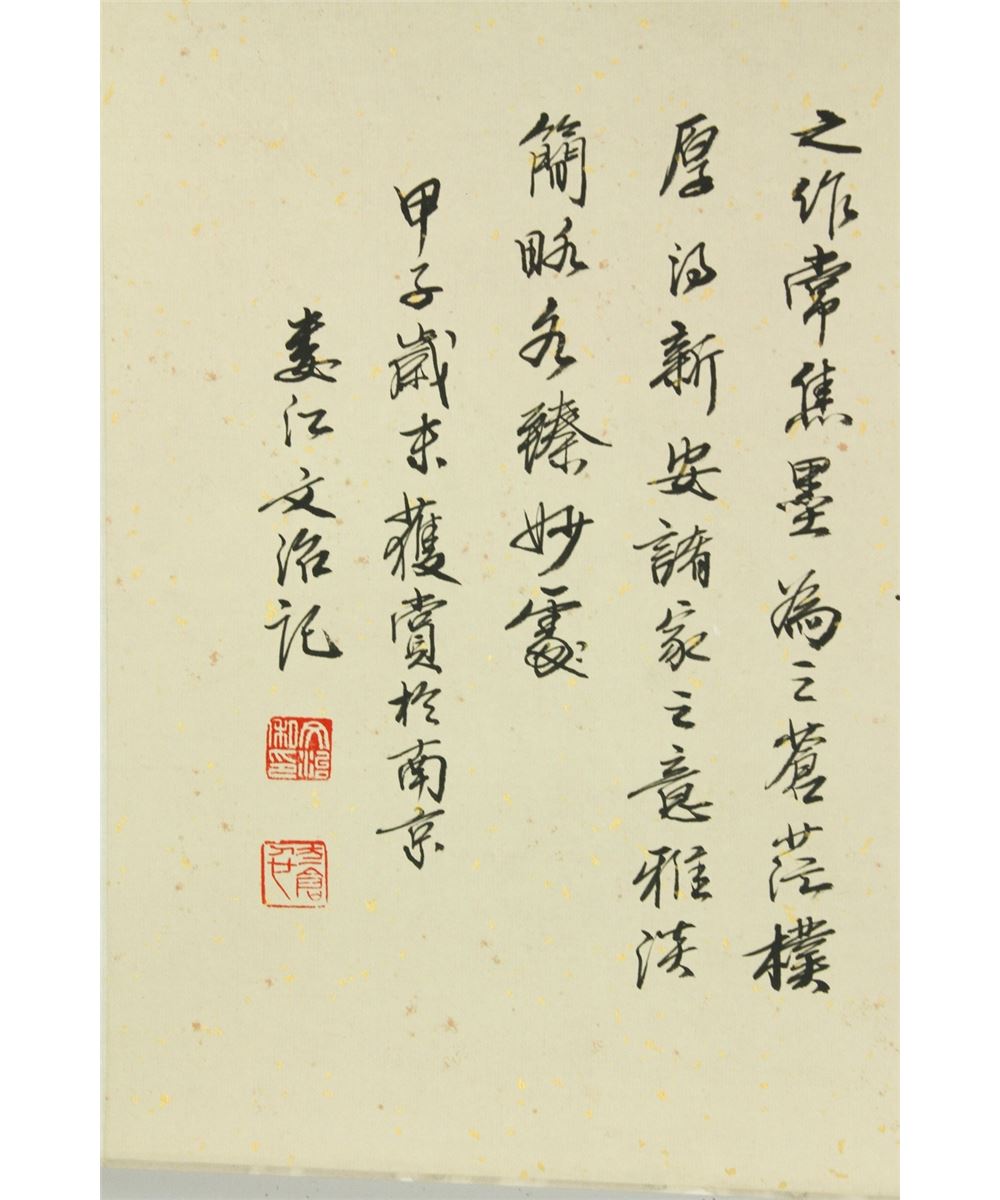 之作常焦墨為之蒼茫樸
厚得新安諸家之意雅淡
簡略各臻妙處
甲子歲末獲賞於南京
婁江文治記